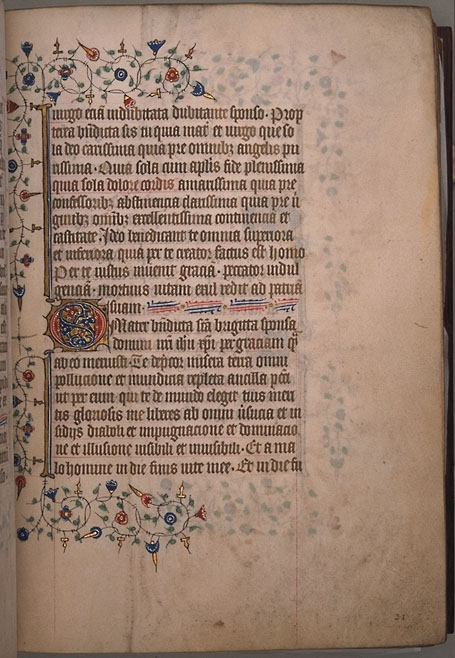 uirgo etiā indubitata dubitante sponso. Prop
terea bn̄dicta sis tu quia mat̄ et uirgo que so
la deo carissima quia pre omnibꝫ angelis pu
rissima. Quia sola cum aplis fide plenissima
quia sola dolore cordis amarissima quia pre
confessoribꝫ abstinencia clarissima quia pre ū
ginibꝫ om̄ibꝫ excellentissima continencia et
castitate. Ideo benedicant te omnia superiora
et inferiora quia per te creator factus est homo
Per te iustus inuenit graciā. peccator indul
genciā. mortuus uitam exul redit ad patriā
suam.
O Mater bn̄dicta sc̄a brigitta sponsa
domini nr̄i ihu xp̄i per graciam q̄
ab eo meruisti. Te dep̄cor misera terra omni
pollucione et inmundicia repleta ancilla pc̄ti
ut per eum qui te de mundo elegit tuis meri
tis gloriosis me liberes ab omni ūsucia et in
sidijs diaboli et impugnacione et dominacio
ne et illusione uisibili et inuisibili. Et a ma
lo homine in die finis uite mee. Et in die fu
21